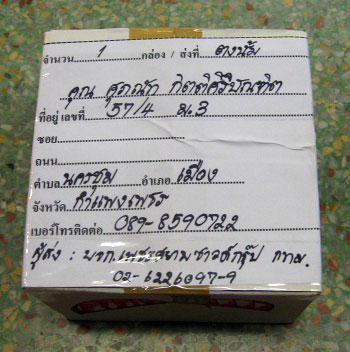 จำนวน 1 กล่อง / ส่งที่ ตงนั้ม
คุณ ศุภณัก กิตติศิริบัณฑิต
ที่อยู่ เลขที่ 57/4 ม.3
ซอย
ถนน
ตำบล นครชุม อำเภอ เมือง
จังหวัด กำแพงเพชร
เบอร์โทรติดต่อ 089-8590722
ผู้ส่ง : บจก.เพชรสยามซาวด์กรุ๊ป กทม.
02-6226097-9